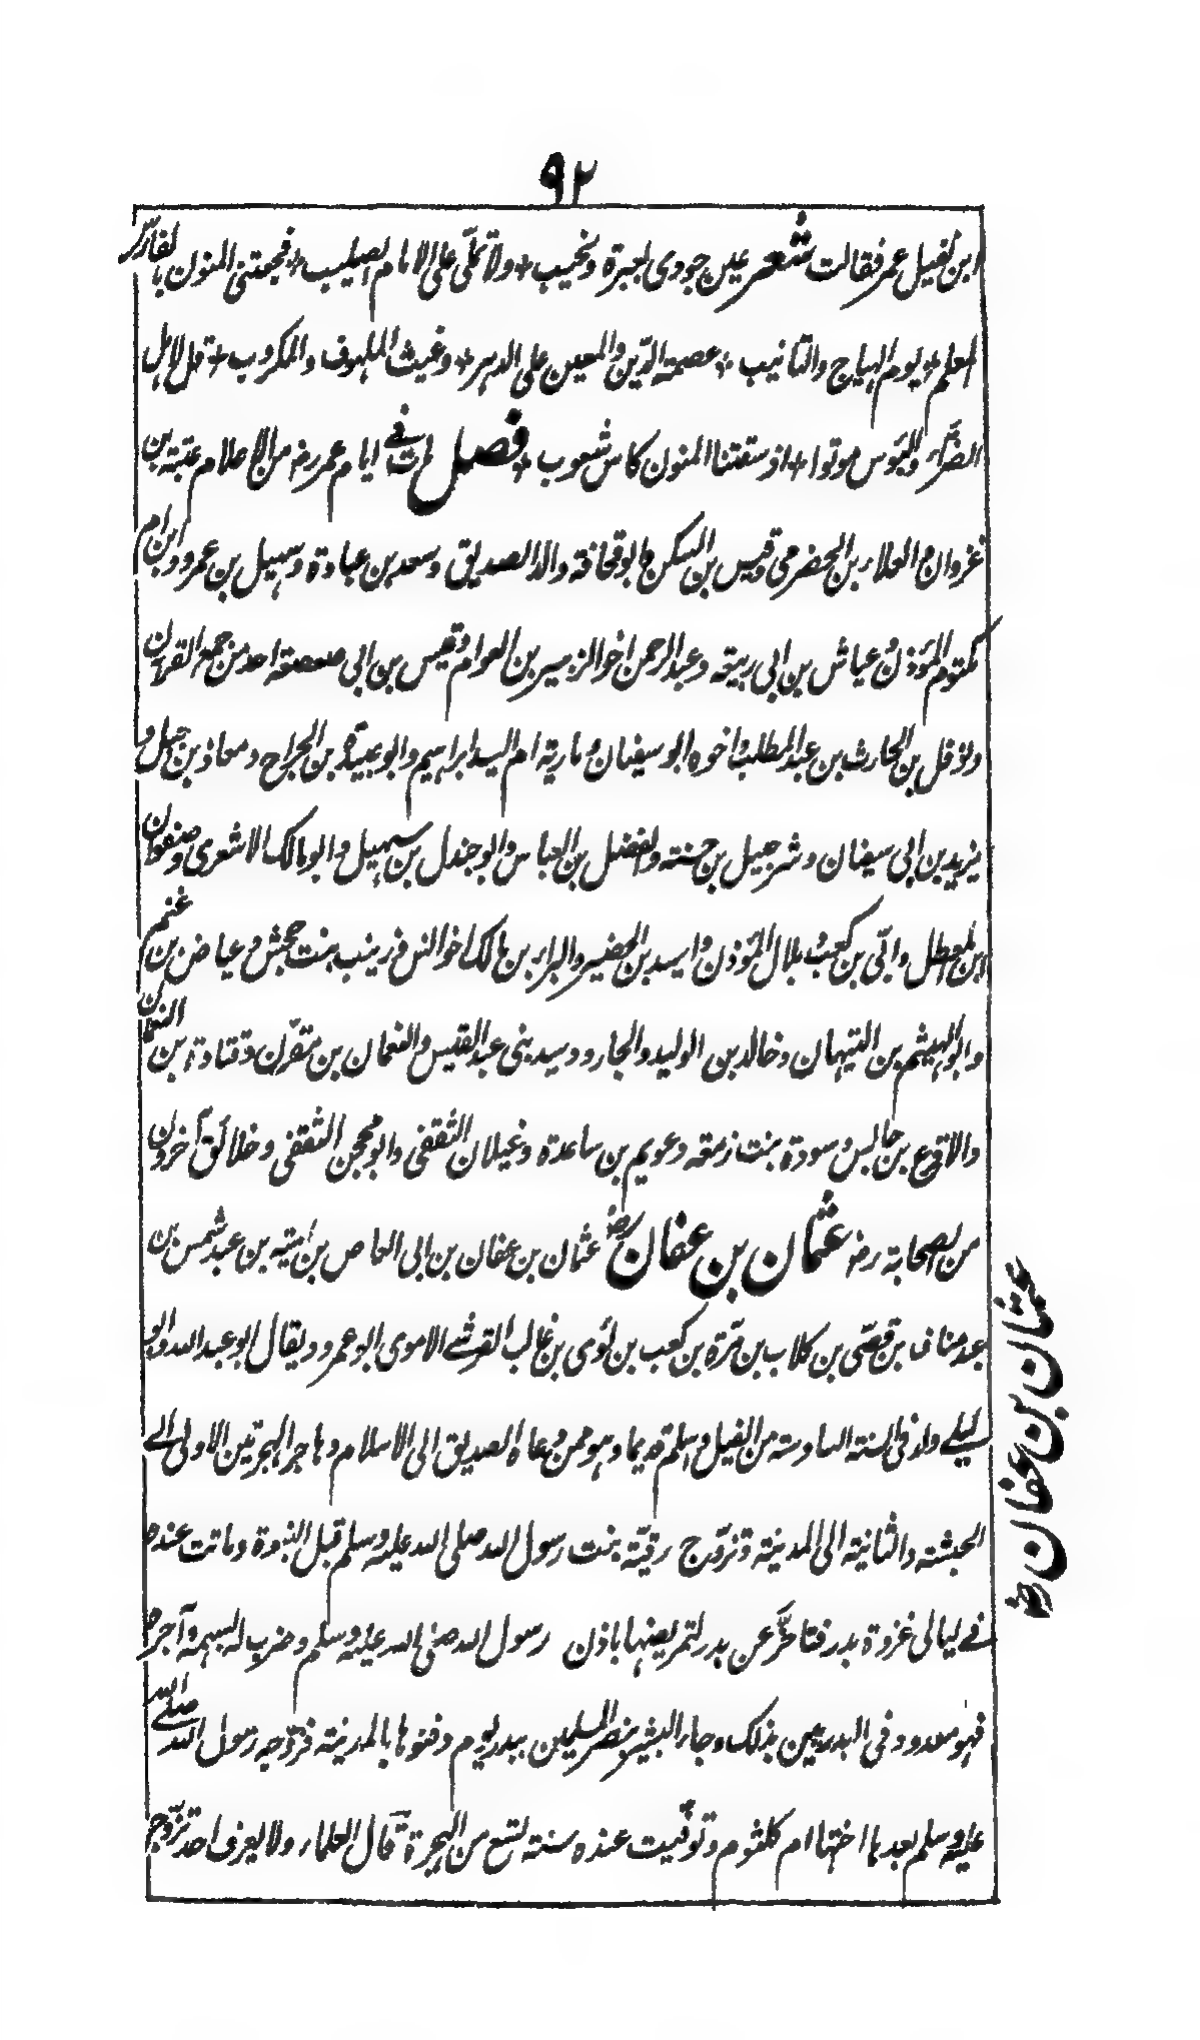 ٩٢
ابن نفيل عمر فقالت شعر عين جودي بعبرة ونحيب + ولا تملّي على الامام الصليب + فجعتني المنون بالفارس
المعلم + يوم الهياج والتانيب + عصمة الدّين والمعين على الدهر + وغيث الملهوف والمكروب + قل لاهل
الضرّاء والبؤس موتوا + اذ سقتنا المنون كاس شعوب + فصل مات في ايام عمر رضه من الاعلام عتبة بن
غزوان والعلاء بن الحضرمي وقيس بن السكن وابو قحافة والد الصديق وسعد بن عبادة وسهيل بن عمرو وابن ام
مكتوم المؤذن وعياش بن ابي ربيعة وعبد الرحمن اخو الزبير بن العوام وقيس بن ابي صعصعة احد من جمع القران
ونوفل بن الحارث بن عبد المطلب واخوه ابو سفيان ومارية ام السيد ابراهيم وابو عبيدة بن الجراح ومعاذ بن جبل و
يزيد بن ابي سفيان وشرحبيل بن حسنة والفضل بن العباس وابو جندل بن سهيل وابو مالك الاشعري وصفوان
ابن المعطل وابيّ بن كعب وبلال المؤذن واسيد بن الحضير والبراء بن مالك اخو انس وزينب بنت جحش وعياض بن غنم
وابو الهيثم بن التيهان وخالد بن الوليد والجارود سيد بني عبد القيس والنعمان بن مقرّن وقتادة بن النعمان
والاقرع بن حابس وسودة بنت زمعة وعويم بن ساعدة وغيلان الثقفي وابو محجن الثقفي وخلائق آخرون
من الصحابة رضه عثمان بن عفان رضه عثمان بن عفان بن ابي العاص بن امية بن عبد شمس بن
عبد مناف بن قصيّ بن كلاب بن مرّة بن كعب بن لوي بن غالب القرشي الاموي ابو عمرو ويقال ابو عبد الله وابو
ليلى ولد في السنة السادسة من الفيل واسلم قديما وهو ممن دعاه الصديق الى الاسلام وهاجر الهجرتين الاولى الى
الحبشة والثانية الى المدينة وتزوّج رقيّة بنت رسول الله صلى الله عليه وسلم قبل النبوة وماتت عنده
في ليالي غزوة بدر فتاخّر عن بدر لتمريضها باذن رسول الله صلى الله عليه وسلم وضرب له بسهمه وآجره
فهو معدود في البدريين بذلك وجاء البشير بنصر المسلمين ببدر يوم دفنوها بالمدينة فزوّجه رسول الله صلى الله
عليه وسلم بعدها اختها ام كلثوم وتوفّيت عنده سنة تسع من الهجرة قال العلماء ولا يعرف احد تزوّج
عثمان بن عفان رضه